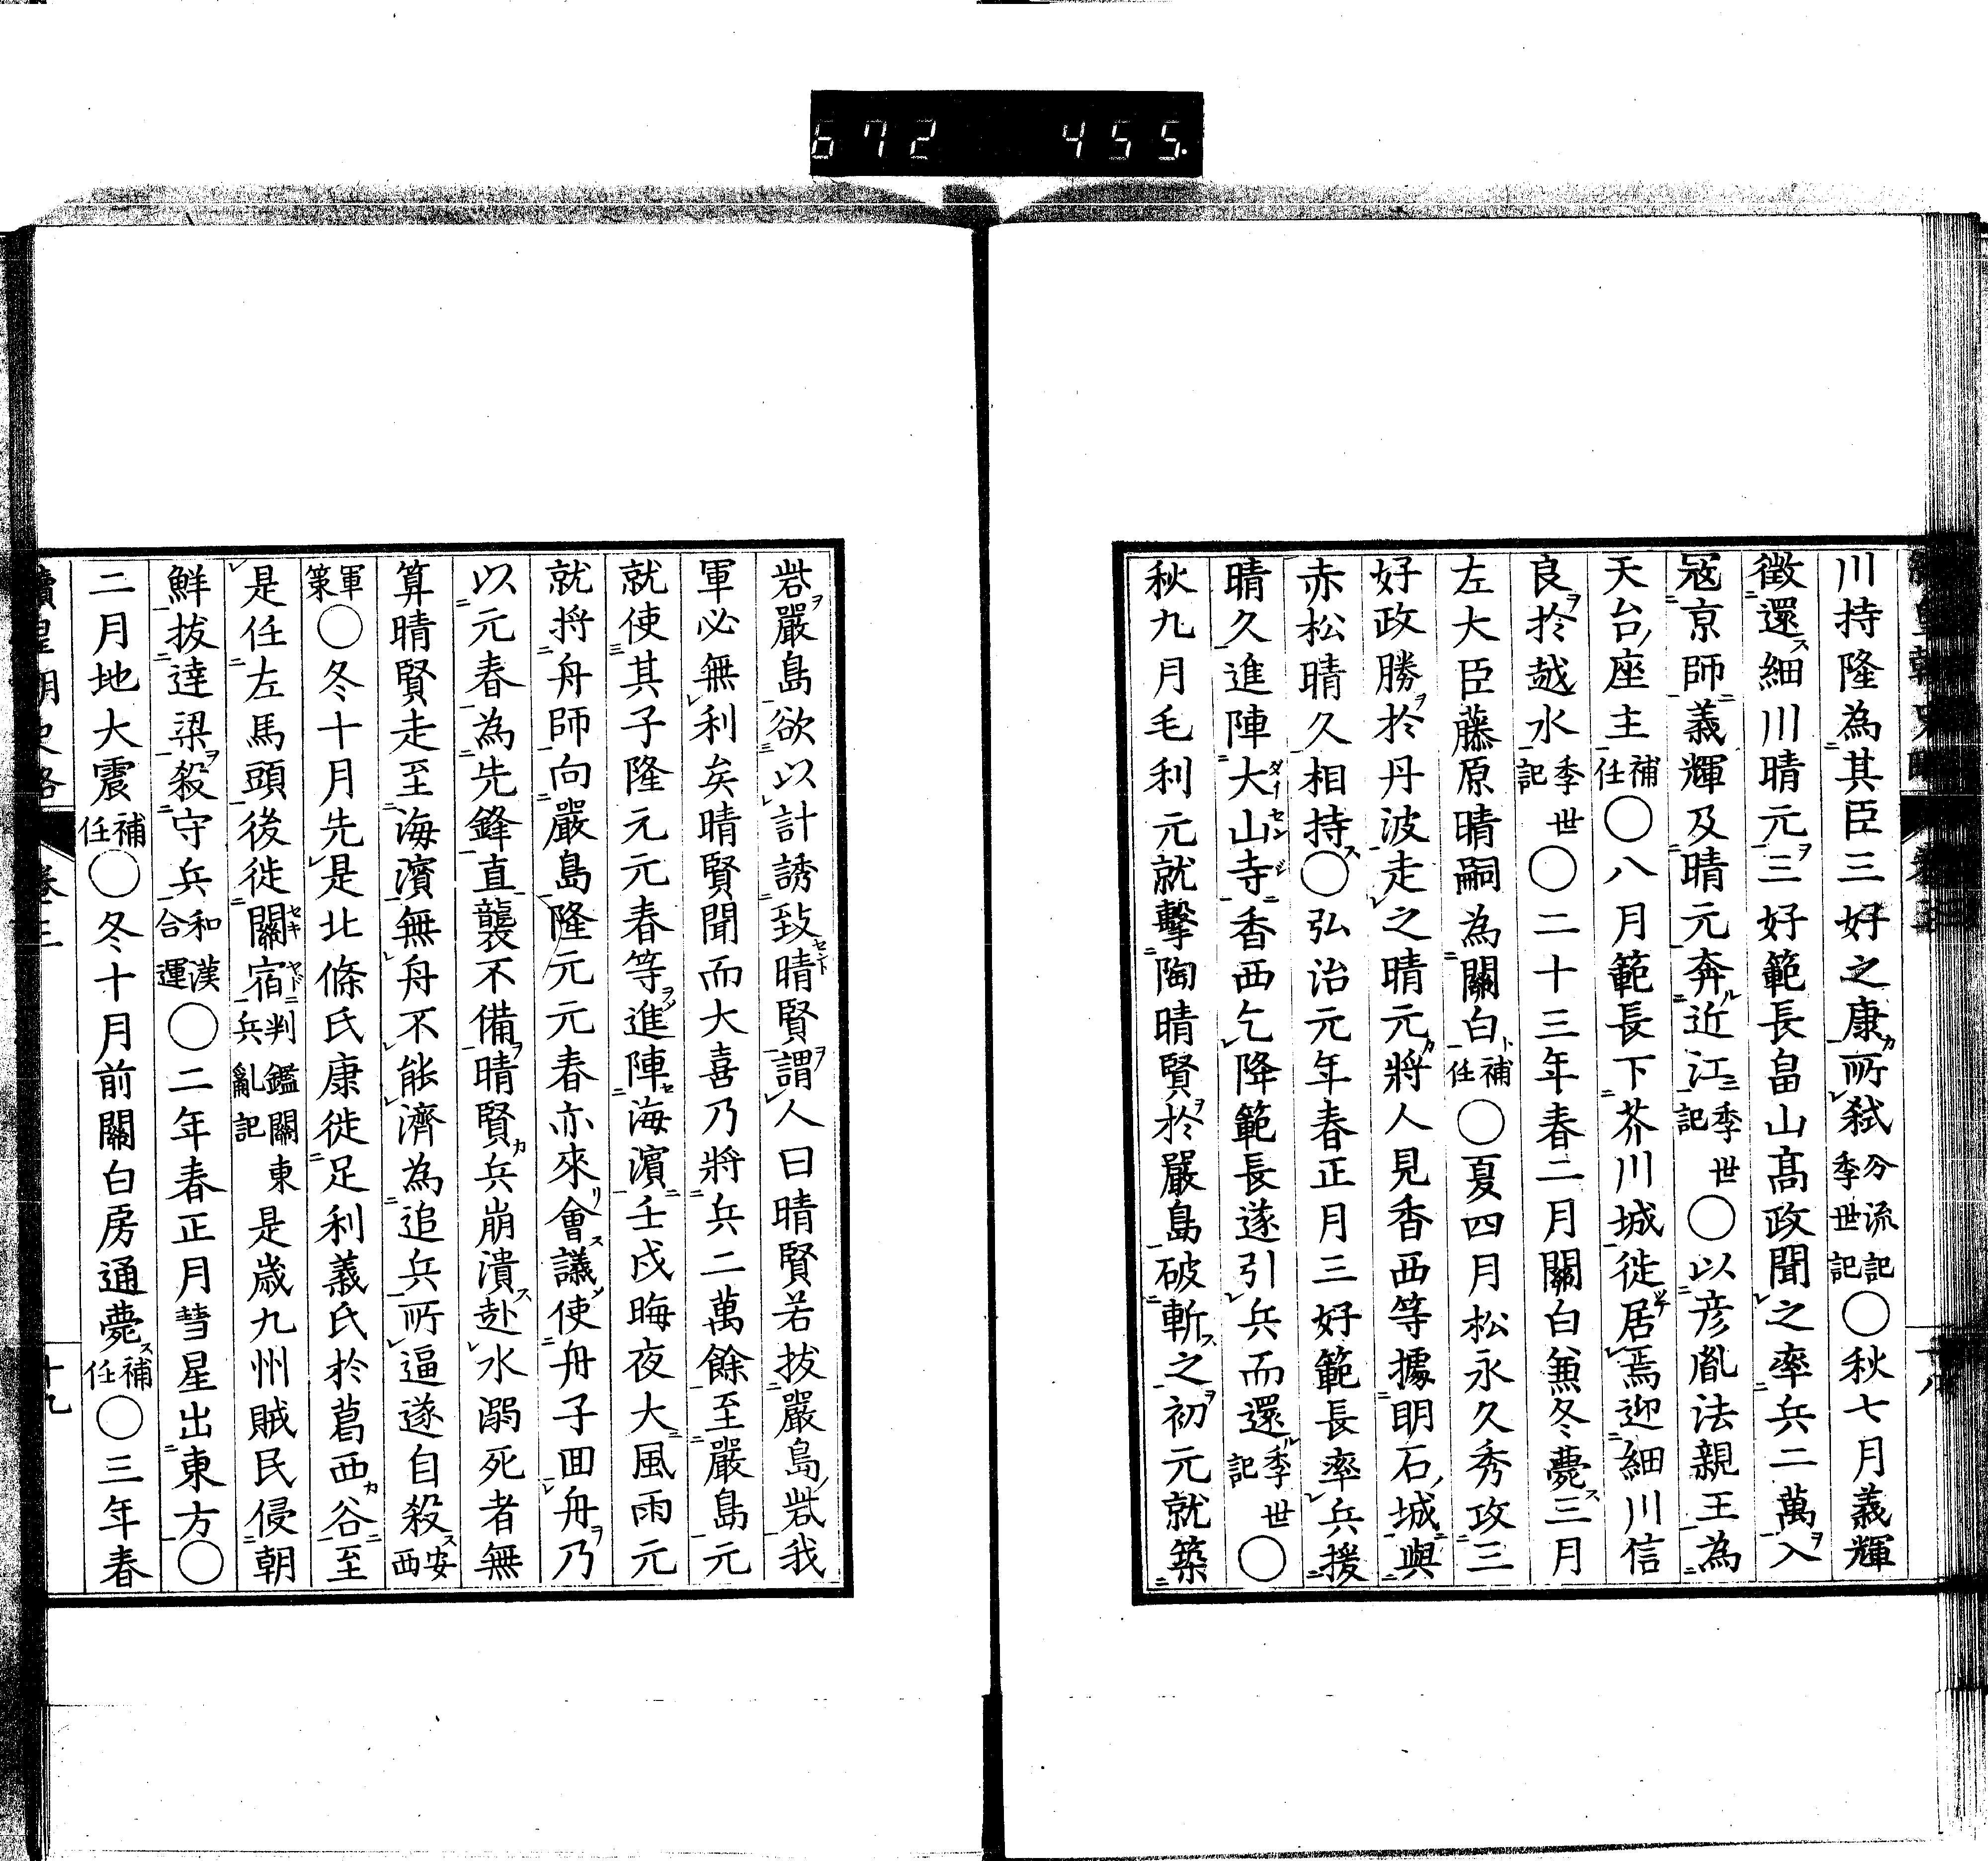 672 455
川持隆為其臣三好之康所弑分流記季世記〇秋七月義輝
徵還細川晴元三好範長畠山髙政聞之率兵二萬入
冦京師義輝及晴元奔近江季世記〇以彦胤法親王為
天台座主補任〇八月範長下芥川城徙居焉迎細川信
良於越水季世記〇二十三年春二月關白兼冬薨三月
左大臣藤原晴嗣為關白補任〇夏四月松永久秀攻三
好政勝於丹波走之晴元將人見香西等據明石城與
赤松晴久相持〇弘治元年春正月三好範長率兵援
晴久進陣大山寺香西乞降範長遂引兵而還季世記〇
秋九月毛利元就擊陶晴賢於嚴島破斬之初元就築
砦嚴島欲以計誘致晴賢謂人曰晴賢若拔嚴島砦我
軍必無利矣晴賢聞而大喜乃將兵二萬餘至嚴島元
就使其子隆元元春等進陣海濵壬戍晦夜大風雨元
就將舟師向嚴島隆元元春亦來會議使舟子囬舟乃
以元春為先鋒直襲不備晴賢兵崩潰赴水溺死者無
算晴賢走至海濵無舟不能濟為追兵所逼遂自殺安西
軍策〇冬十月先是北條氏康徙足利義氏於葛西谷至
是任左馬頭後徙關宿判鑑關東兵亂記是歳九州賊民侵朝
鮮拔達梁殺守兵和漢合運〇二年春正月彗星出東方〇
二月地大震補任〇冬十月前關白房通薨補任〇三年春
續皇朝史略 卷三 十九